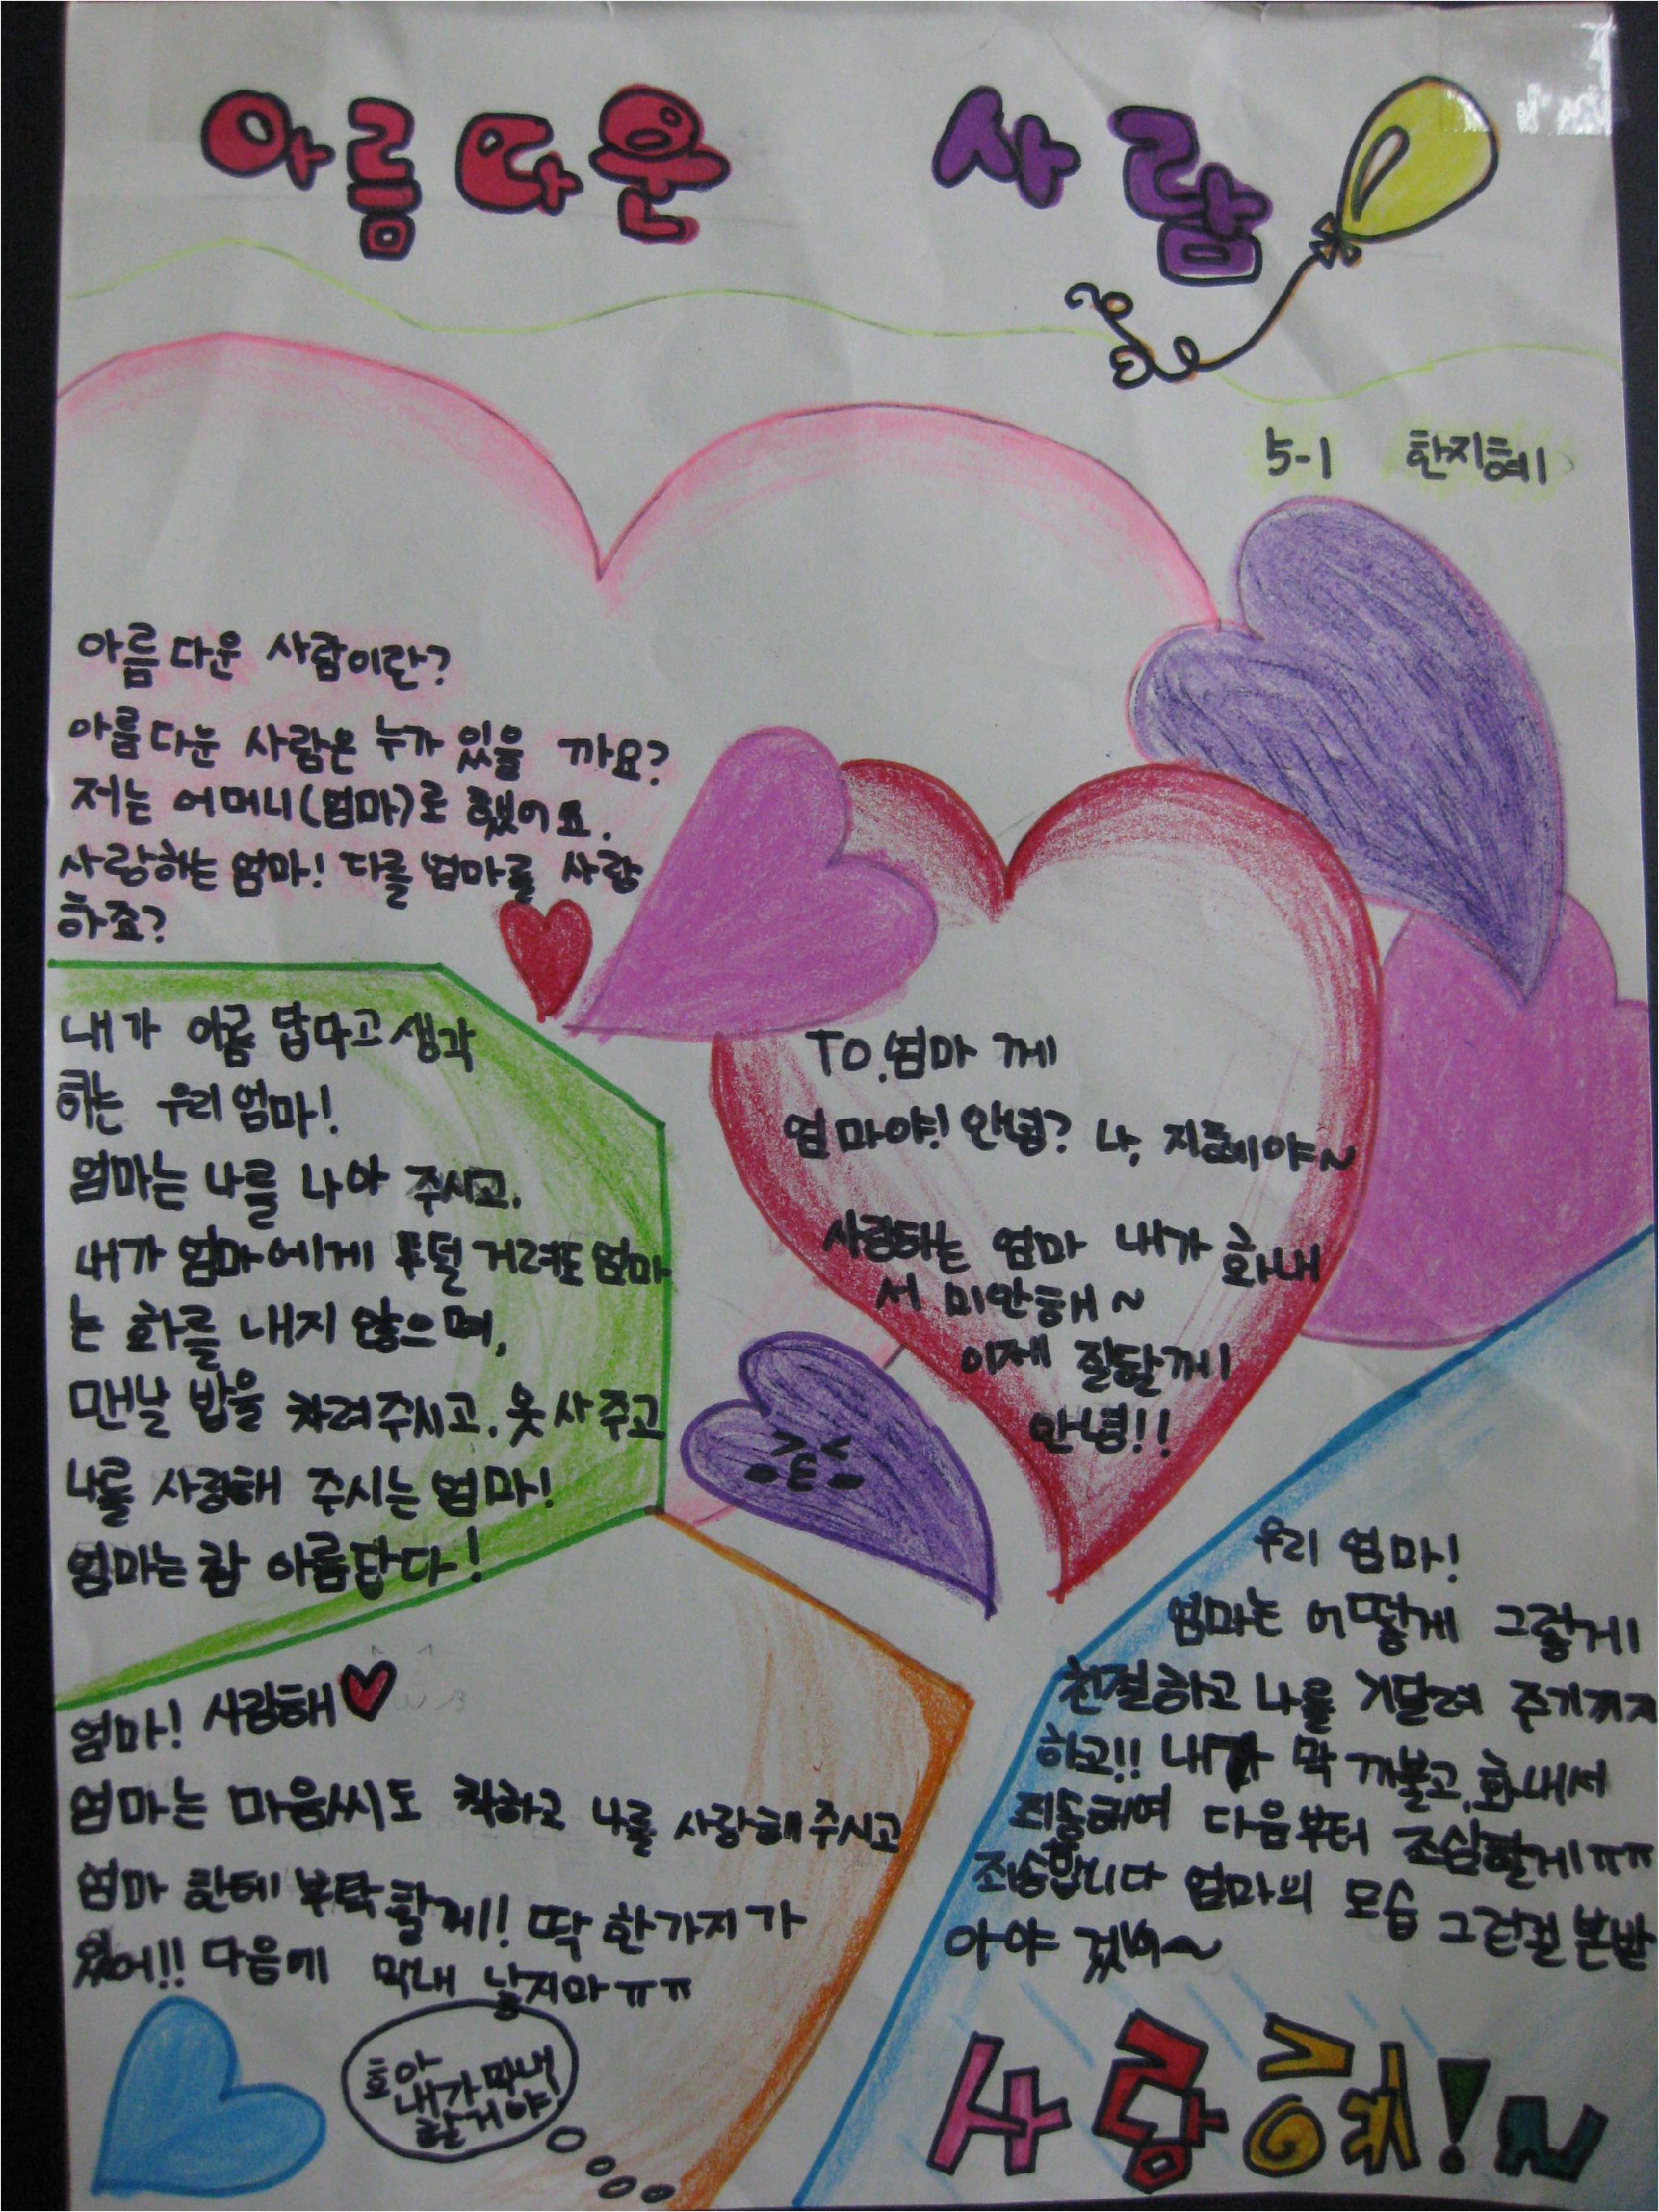 아름다운 사람
5-1 한지혜
아름다운 사람이란?
아름다운 사람은 누가 있을 까요?
저는 어머니(엄마)로 했어요.
사랑하는 엄마! 다를 엄마를 사랑
하죠?
내가 아름 답다고 생각
하는 우리 엄마!
엄마는 나를 나아 주시고.
내가 엄마에게 투덜 거려도 엄마
는 화를 내지 않으며,
맨날 밥을 차려주시고. 옷 사 주고
나를 사랑해 주시는 엄마!
엄마는 참 아름답다!
TO.엄마 께
엄마야! 안녕? 나, 지혜야~
사랑하는 엄마 내가 화내
서 미안해~
이제 잘할께
안녕!!
엄마! 사랑해
엄마는 마음씨도 착하고 나를 사랑해 주시고
엄마 한테 부탁 할께! 딱 한가지가
있어!! 다음에 막내 낳지마 ㅠㅠ
내가 막내
할거야!
우리 엄마!
엄마는 어떻게 그렇게
친절하고 나를 기달려 주기까지
하고!! 내가 막 까불고, 화내서
죄송해여 다음부터 조심할게 ㅠㅠ
죄송합니다 엄마의 모습 그런걸 본받
아야 겠네~
사랑해!~